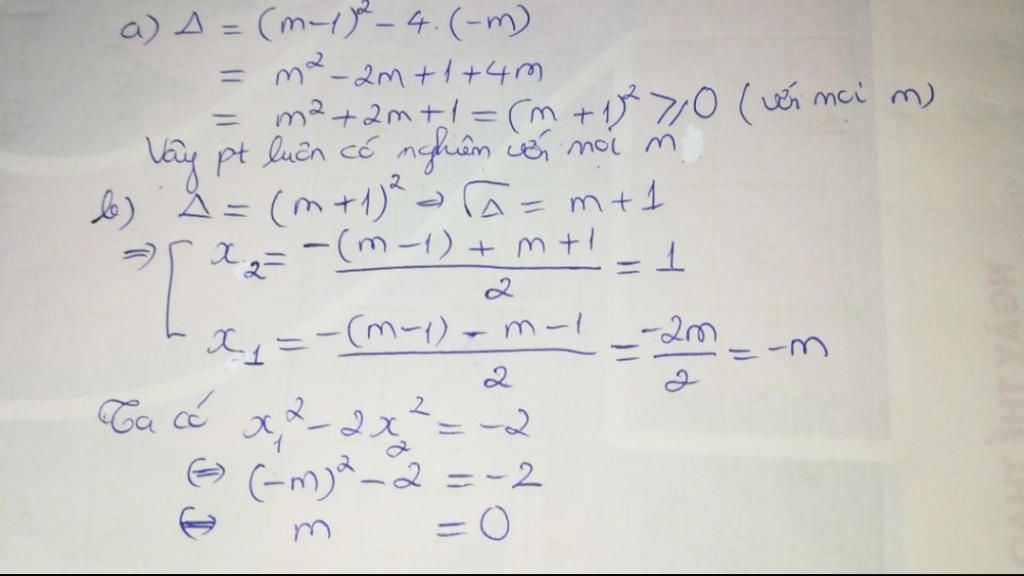 a) Δ = (m-1)² - 4.(-m)
= m² - 2m + 1 + 4m
= m² + 2m + 1 = (m + 1)² ⩾ 0 (với mọi m)
Vậy pt luôn có nghiệm với mọi m
b) Δ = (m+1)² ⇒ √Δ = m + 1
⇒ [ x₂ = (-(m-1) + m + 1)/2 = 1
x₁ = (-(m-1) - m - 1)/2 = -2m/2 = -m
Ta có x₁² - 2x₂² = -2
⇔ (-m)² - 2 = -2
⇔ m = 0